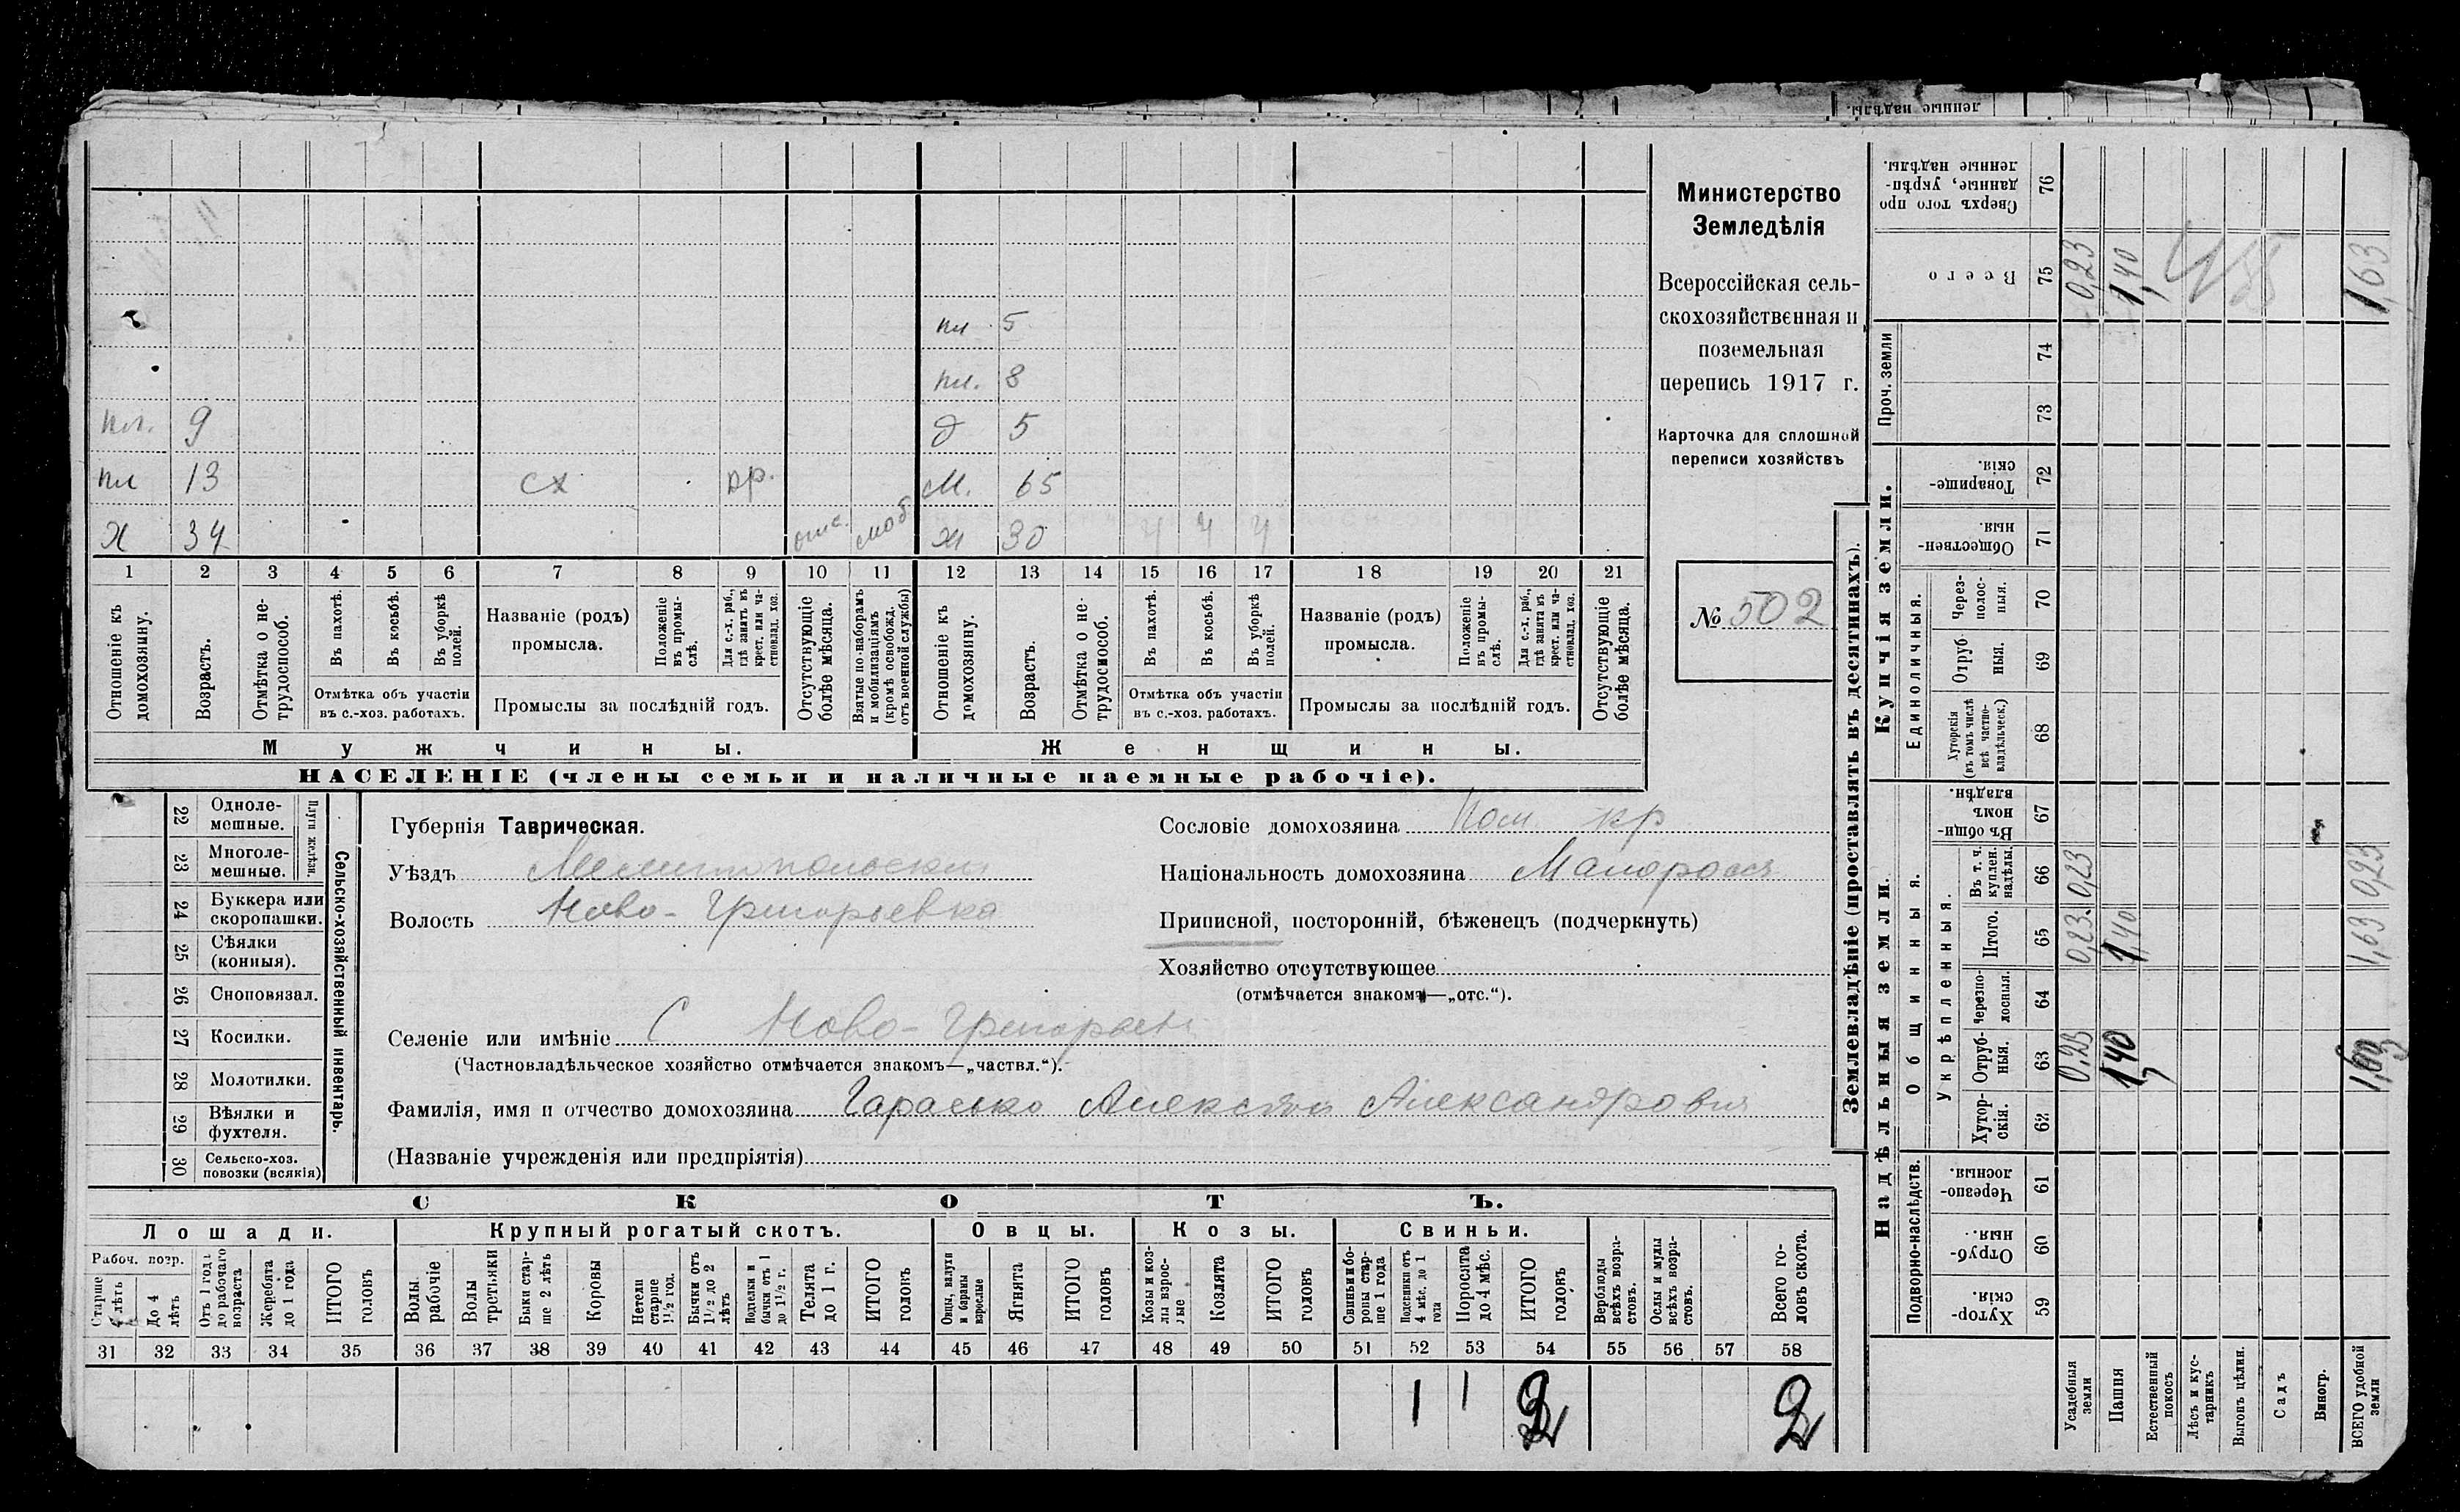 ленные надѣлы.
пл 5
пл. 8
пл. 9 д 5
пл 13 сх пр. м. 65
х 34 отс. моб х 30 ч ч ч
1 2 3 4 5 6 7 8 9 10 11 12 13 14 15 16 17 18 19 20 21
Отношеніе къ домохозяину.
Возрастъ.
Отмѣтка о не-трудоспособ.
Въ пахотѣ.
Въ косьбѣ.
Въ уборкѣ полей.
Отмѣтка объ участіи въ с.-хоз. работахъ.
Названіе (родъ) промысла.
Положеніе въ промы-слѣ.
Для с.-х. раб., гдѣ занятъ въ крест. или ча-стновлад. хоз.
Промыслы за послѣдній годъ.
Отсутствующіе болѣе мѣсяца.
Взятые по наборамъ и мобилизаціямъ (кромѣ освобожд. отъ военной службы)
Отношеніе къ домохозяину.
Возрастъ.
Отмѣтка о не-трудоспособ.
Въ пахотѣ.
Въ косьбѣ.
Въ уборкѣ полей.
Отмѣтка объ участіи въ с.-хоз. работахъ.
Названіе (родъ) промысла.
Положеніе въ промы-слѣ.
Для с.-х. раб., гдѣ занята въ крест. или ча-стновлад. хоз.
Промыслы за послѣдній годъ.
Отсутствующіе болѣе мѣсяца.
Мужчины. Женщины.
НАСЕЛЕНІЕ (члены семьи и наличные наемные рабочіе).
Министерство
Земледѣлія
Всероссійская сель-
скохозяйственная и
поземельная
перепись 1917 г.
Карточка для сплошной
переписи хозяйствъ
№ 502
22 Одноле-мешные.
23 Многоле-мешные.
Плуги желѣзн.
24 Буккера или скоропашки.
25 Сѣялки (конныя).
26 Сноповязал.
27 Косилки.
28 Молотилки.
29 Вѣялки и фухтеля.
30 Сельско-хоз. повозки (всякія)
Сельско-хозяйственный инвентарь.
Губернія Таврическая.
Уѣздъ Мелитопольскій
Волость Ново-Григорьевка
Сословіе домохозяина Пом. кр
Національность домохозяина Малоросс
Приписной, посторонній, бѣженецъ (подчеркнуть)
Хозяйство отсутствующее
(отмѣчается знакомъ—„отс.“).
Селеніе или имѣніе С Ново-Григорьев
(Частновладѣльческое хозяйство отмѣчается знакомъ—„частвл.“).
Фамилія, имя и отчество домохозяина Гарасько Алексѣй Александрович
(Названіе учрежденія или предпріятія)
СКОТЪ.
Лошади. Крупный рогатый скотъ. Овцы. Козы. Свиньи.
Рабоч. возр.
Старше 4 лѣтъ
До 4 лѣтъ
Отъ 1 года до рабочаго возраста
Жеребята до 1 года
ИТОГО головъ
Волы рабочіе
Волы третьяки
Быки стар-ше 2 лѣтъ
Коровы
Нетели старше 1½ год.
Бычки отъ 1½ до 2 лѣтъ
Подтелки и бычки отъ 1 до 1½ г.
Телята до 1 г.
ИТОГО головъ
Овцы, валухи и бараны взрослые
Ягнята
ИТОГО головъ
Козы и коз-лы взрос-лые
Козлята
ИТОГО головъ
Свиньи и бо-ровы стар-ше 1 года
Подсвинки отъ 4 мѣс. до 1 года
Поросята до 4 мѣс.
ИТОГО головъ
Верблюды всѣхъ возра-стовъ.
Ослы и мулы всѣхъ возра-стовъ.
Всего го-ловъ скота.
31 32 33 34 35 36 37 38 39 40 41 42 43 44 45 46 47 48 49 50 51 52 53 54 55 56 57 58
1 1 2 2
Землевладѣніе (проставлять въ десятинахъ).
Купчія земли.
Надѣльныя земли.
Сверхъ того про данные, укрѣп-ленные надѣлы. 76
Всего 75 0,23 1,40 1,63
Проч. земли 74 73
Товарище-скія. 72
Обществен-ныя. 71
Единоличныя.
Через-полос-ныя. 70
Отруб ныя. 69
Хуторскія (въ томъ числѣ всѣ частно-владѣльческ.) 68
Общинныя.
Въ общи-номъ владѣн. 67
Укрѣпленныя.
Въ т. ч. куплен. надѣлы. 66 0,23 0,23
Итого. 65 0,23 1,40 1,63
Черезпо-лосныя. 64
Отруб-ныя. 63 0,23 1,40
Хутор-скія. 62
Подворно-наслѣдств.
Черезпо-лосныя. 61
Отруб-ныя. 60
Хутор-скія. 59
Усадебныя земли
Пашня
Естественный покосъ
Лѣсъ и кус-тарникъ
Выгонъ цѣлин.
Садъ
Виногр.
ВСЕГО удобной земли